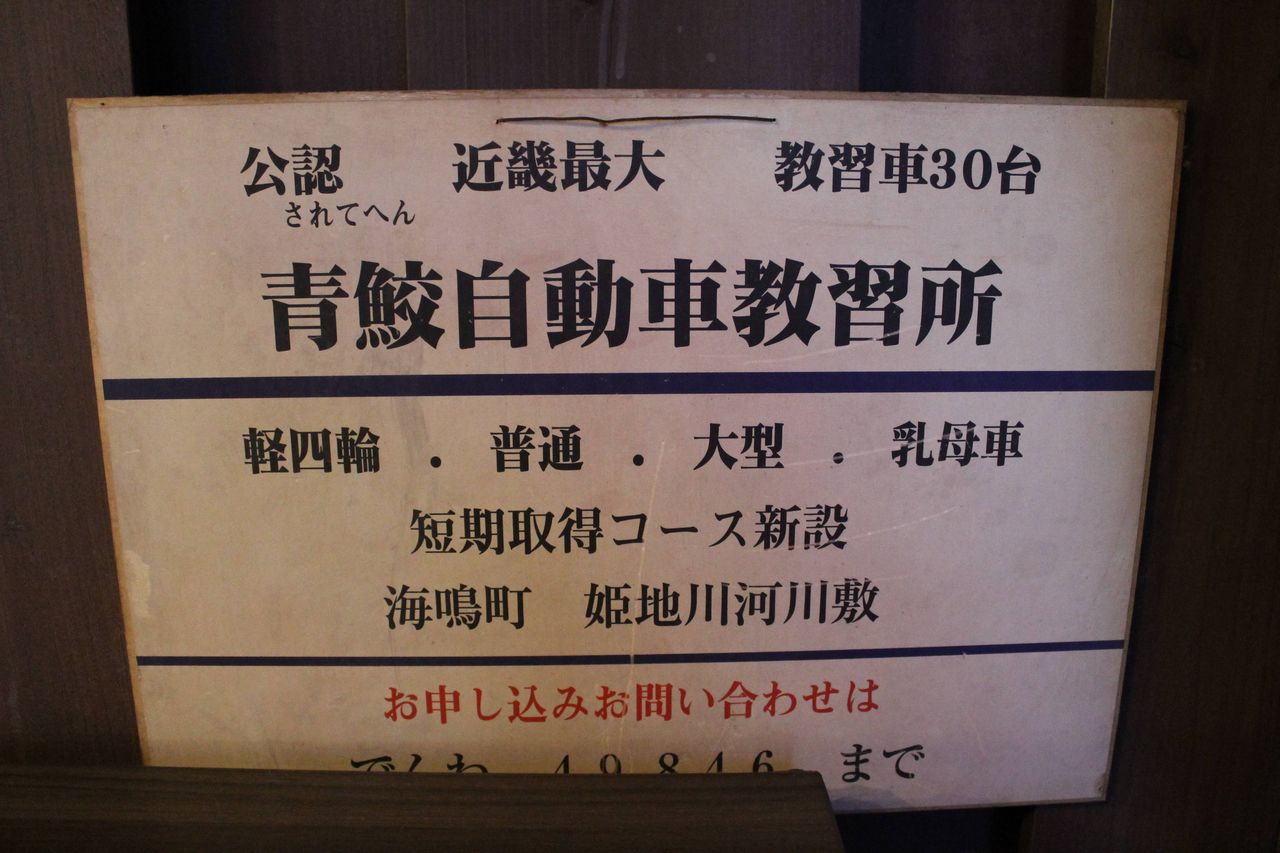 公認　近畿最大　教習車30台
されてへん
青鮫自動車教習所
軽四輪．普通．大型．乳母車
短期取得コース新設
海鳴町　姫地川河川敷
お申し込みお問い合わせは
でんわ　49846　まで